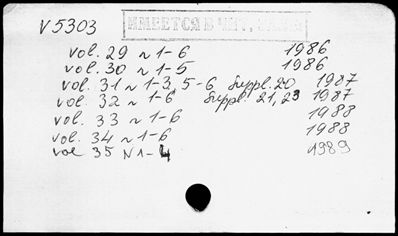 V 5303 ИМЕЕТСЯ В ЧИТ. ЗАЛЕ
vol. 29 n 1-6 1986
vol. 30 n 1-5 1986
vol. 31 n 1-3, 5-6 Suppl. 20 1987
vol. 32 n 1-6 Suppl. 21, 23 1987
vol. 33 n 1-6 1988
vol. 34 n 1-6 1988
vol 35 N 1-4 1989